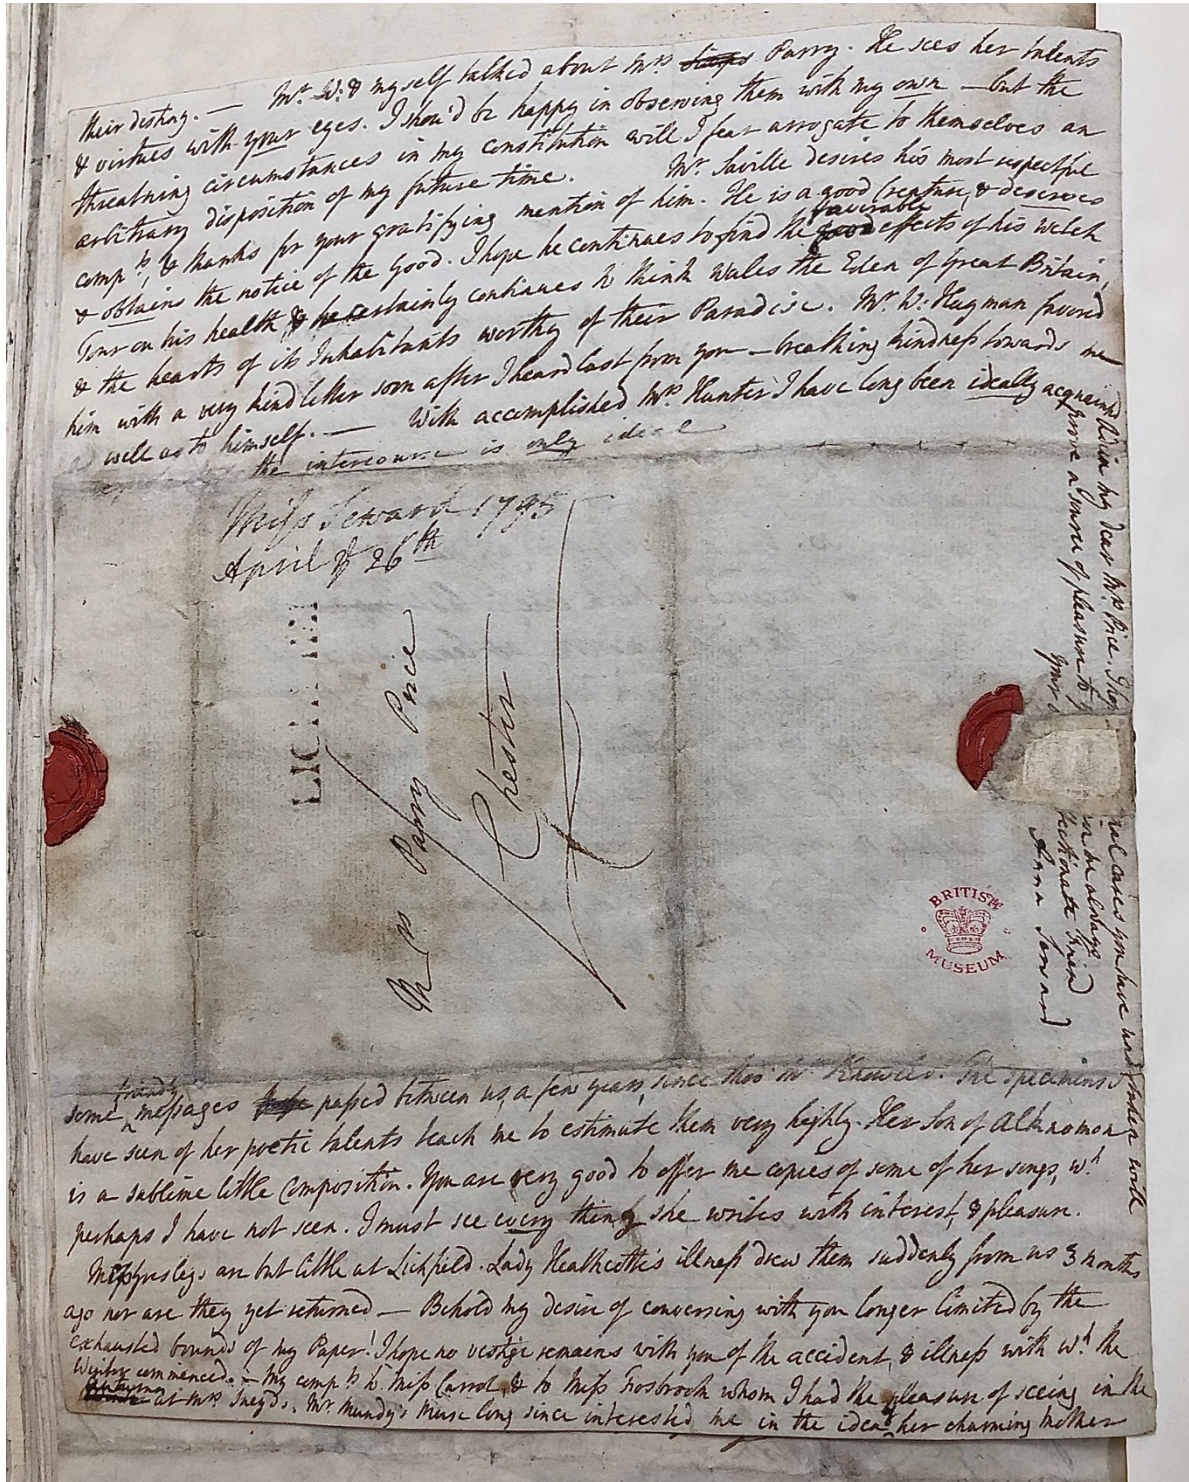 their destiny. — Mr. W: & myself talked about Mrs Parry. He sees her talents
& virtues with your eyes. I shou'd be happy in observing them with my own — but the
threatning circumstances in my constitution will I fear arrogate to themselves an
arbitrary disposition of my future time. Mr. Saville desires his most respectful
comp.ts, & thanks for your gratifying mention of him. He is a good Creature, & deserves
& obtains the notice of the Good. I hope he continues to find the favorable effects of his Welch
Tour on his health & he certainly continues to think Wales the Eden of Great Britain,
& the hearts of its Inhabitants worthy of their Paradise. Mr. W. Hayman favored
him with a very kind letter soon after I heard last from you — breathing kindness towards me
as well as to himself. — With accomplished Mrs. Hunter I have long been ideally acquainted
the intercourse is only ideal
Miss Seward 1795
April 26th
LICHFIELD
Mrs Patty Price
Chester
BRITISH
MUSEUM
Adieu my dear Mrs. Price. I
cares you have undertaken will
prove a source of pleasure to
always
Your
Friend
Anna Seward
some friendly messages passed between us, a few years since thro' Mr Knowles. The specimens I
have seen of her poetic talents teach me to estimate them very highly. Her Son of Alknomon
is a sublime little composition. You are very good to offer me copies of some of her songs, wh.
perhaps I have not seen. I must see every thing she writes with interest, & pleasure.
are but little at Lichfield. Lady Heathcotte's illness drew them suddenly from us 3 months
ago nor are they yet returned — Behold my desire of conversing with you longer limited by the
exhausted bounds of my Paper! I hope no vestige remains with you of the accident, & illness with wh. the
Winter commenced. — My comp.ts to Miss Carrol, & to Miss Fosbrook whom I had the pleasure of seeing in the
Autumn at Mrs Sneyds. Mr. Mundy's Muse long since interested me in the idea of her charming Mother